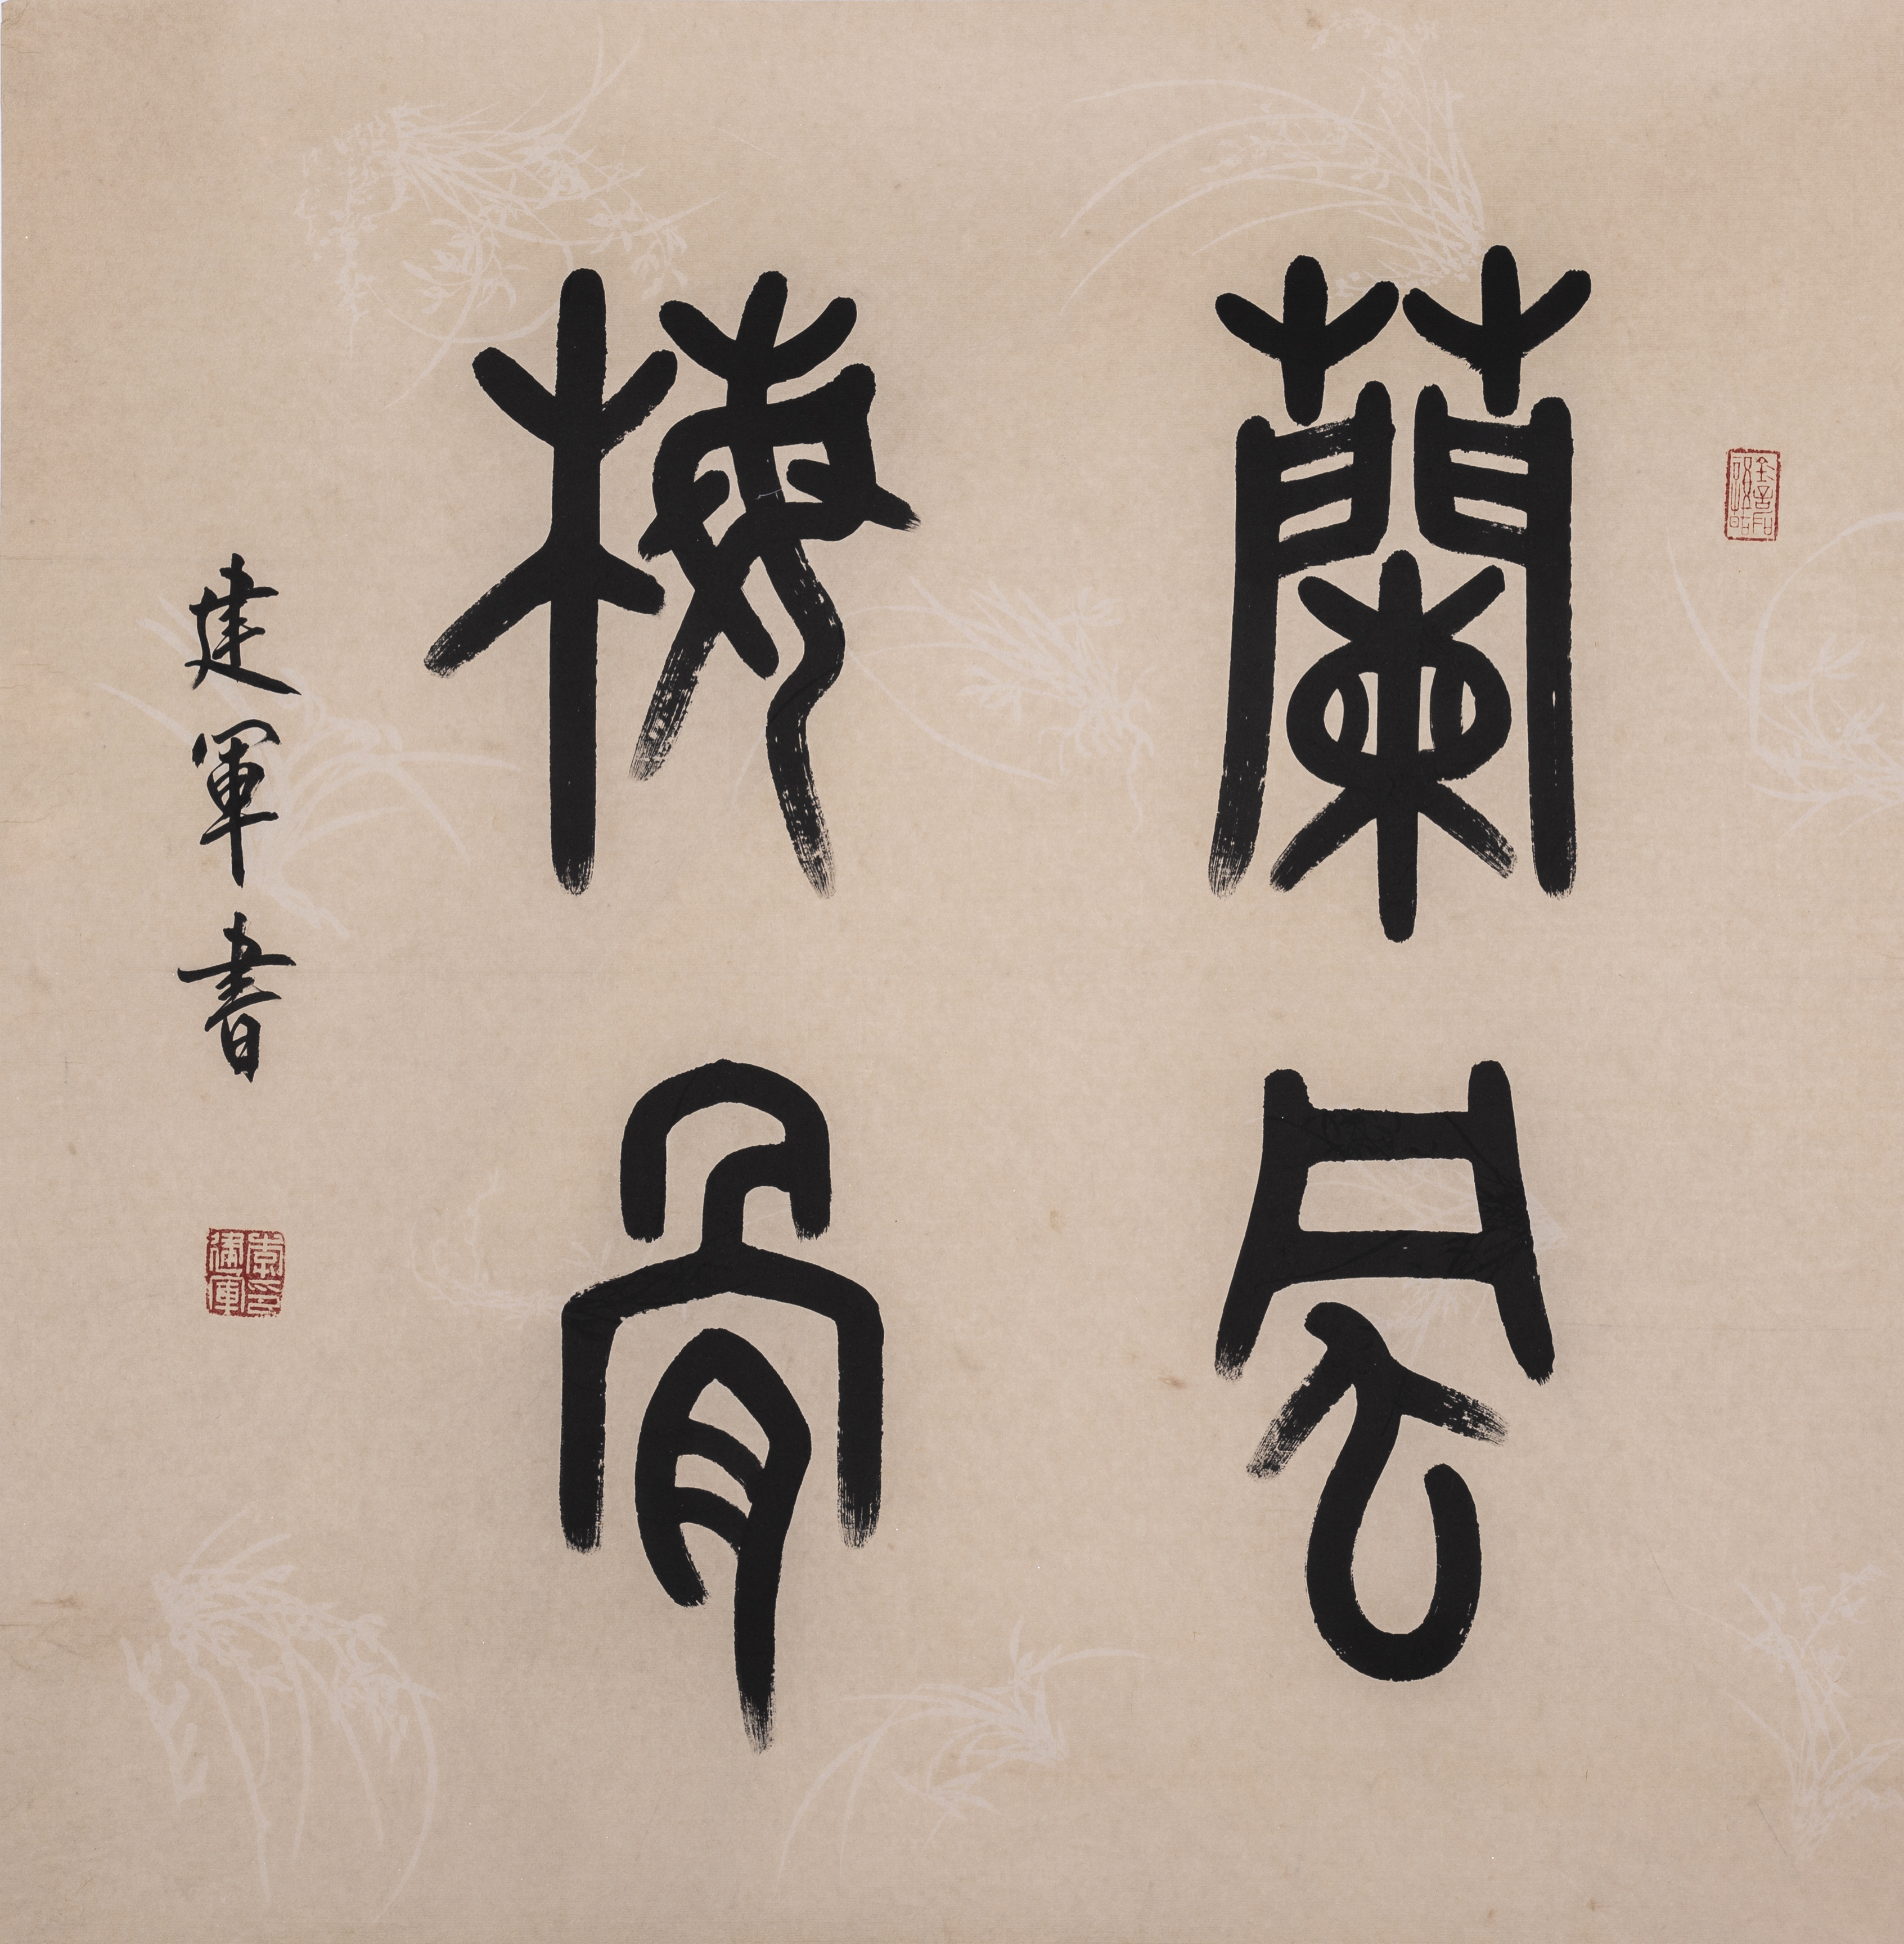 蘭風
梅骨
建軍書